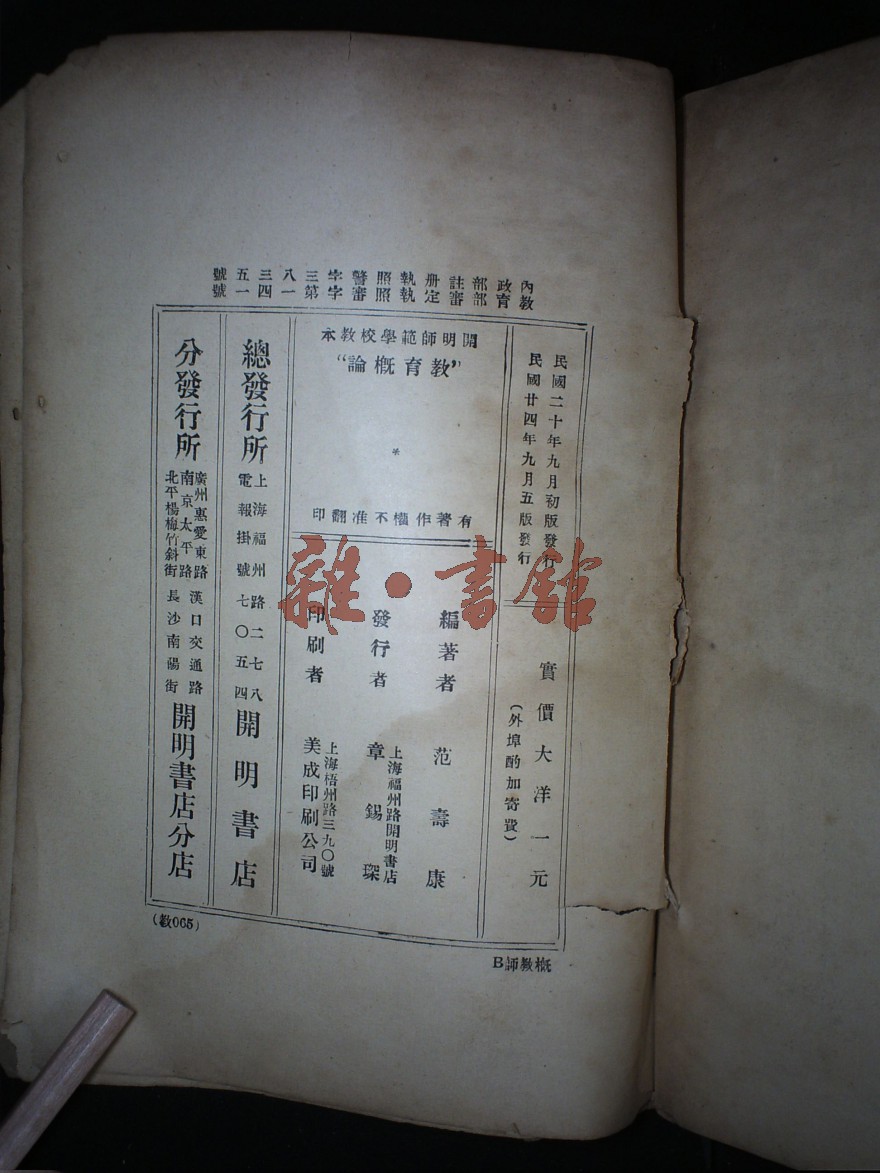 內政部註册執照警字三八三五號
教育部審定執照審字第一四一號
民國二十年九月初版發行
民國廿四年九月五版發行
實價大洋一元
(外埠酌加寄費)
開明師範學校教本
“教育概論”
*
有著作權不准翻印
編著者 范壽康
發行者 上海福州路開明書店 章錫琛
印刷者 上海梧州路三九〇號 美成印刷公司
總發行所 上海福州路二七八 電報掛號七〇五四 開明書店
分發行所 廣州惠愛東路 漢口交通路 南京太平路 長沙南陽街 北平楊梅竹斜街 開明書店分店
(教065)
概教師B
雜·書館